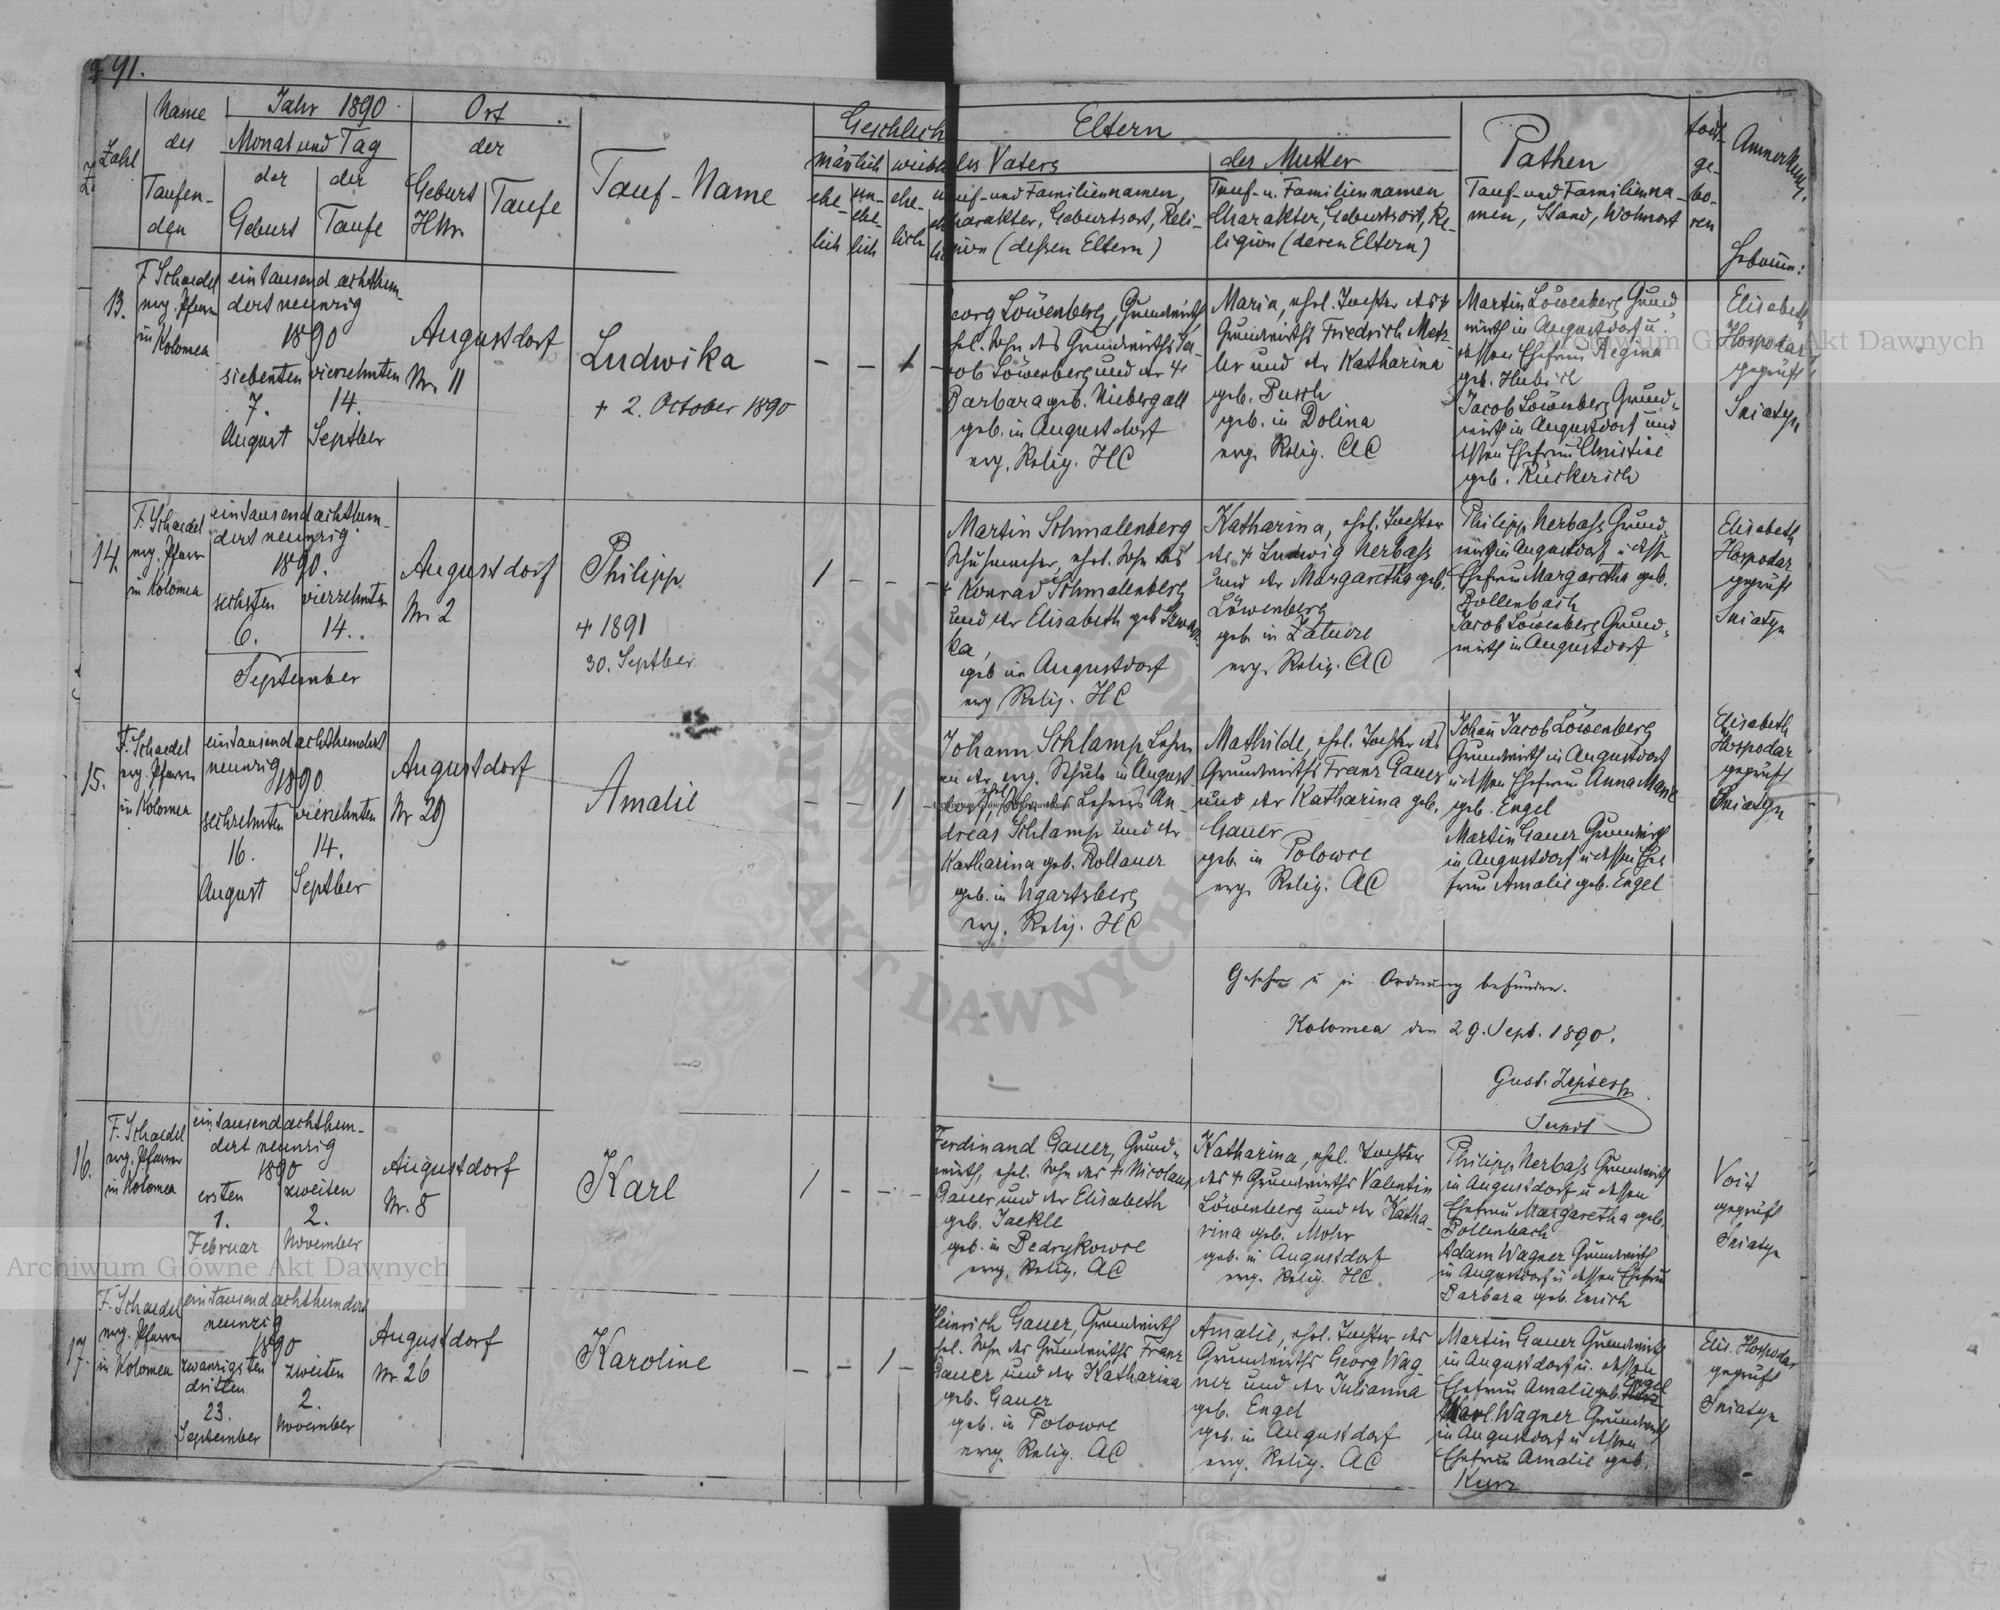 91.
Zahl
Name
des
Taufen-
den
Jahr 1890.
Monat und Tag
der
Geburt
der
Taufe
Ort
der
Geburt
HNr.
Taufe
Tauf-Name
Geschlech
mänlich
ehe-
lich
un-
ehe-
lich
ehe-
lich
Eltern
des Vaters
Tauf- und Familiennamen,
Charakter, Geburtsort, Reli-
gion (dessen Eltern)
der Mutter
Tauf- u. Familiennamen
Charakter, Geburtsort, Re-
ligion (deren Eltern)
Pathen
Tauf- und Familienna-
men, Stand, Wohnort
todt-
ge-
bo-
ren
Anmerkung.
Hebamme:
13.
F. Schaedel
evg. Pfarrer
in Kolomea
ein tausend achthun-
dert neunzig
1890
siebenten
7.
August
vierzehnten
14.
Septber
Augustdorf
Nr. 11
Ludwika
+ 2. October 1890
- - 1 -
Georg Löwenberg, Grundwirth,
ehel. Sohn des Grundwirths Ja-
cob Löwenberg und der +
Barbara geb. Niebergall
geb. in Augustdorf
evg. Relig. HC
Maria, ehel. Tochter des +
Grundwirths Friedrich Metz-
ler und der Katharina
geb. Busch
geb. in Dolina
evg. Relig. AC
Martin Löwenberg Grund-
wirth in Augustdorf u.
dessen Ehefrau Regina
geb. Hubich
Jacob Löwenberg Grund-
wirth in Augustdorf und
dessen Ehefrau Christine
geb. Rückerich
Elisabeth
Hospodar
geprüft
Sniatyn
14.
F. Schaedel
evg. Pfarrer
in Kolomea
ein tausend achthun-
dert neunzig
1890.
sechsten
6.
vierzehnten
14.
September
Augustdorf
Nr. 2
Philipp
+ 1891
30. Septber
1 - - -
Martin Schmalenberg
Schuhmacher, ehel. Sohn des
+ Konrad Schmalenberg
und der Elisabeth geb
geb in Augustdorf
evg Relig. HC
Katharina, ehel. Tochter
des + Ludwig Nerbass
und der Margaretha geb.
Löwenberg
geb in Zalucze
evg. Relig. AC
Philipp Nerbass Grund-
wirth in Augustdorf u dessen
Ehefrau Margaretha geb.
Bollenbach
Jacob Löwenberg Grund-
wirth in Augustdorf
Elisabeth
Hospodar
geprüft
Sniatyn
15.
F. Schaedel
evg. Pfarrer
in Kolomea
ein tausend achthundert
neunzig
1890
sechzehnten
16.
August
vierzehnten
14.
Septber
Augustdorf
Nr 29
Amalie
- - 1 -
Johann Schlamp Lehrer
an der evg. Schule in August-
dorf, ehel. Sohn des Lehrers An-
dreas Schlamp und der
Katharina geb. Rollauer
geb. in Ugartsberg
evg. Relig. HC
Mathilde, ehel. Tochter des
Grundwirths Franz Gauer
und der Katharina geb.
Gauer
geb. in Polowce
evg. Relig. AC
Johan Jacob Löwenberg
Grundwirth in Augustdorf
u dessen Ehefrau Anna Marie
geb. Engel
Martin Gauer Grundwirth
in Augustdorf u dessen Ehe-
frau Amalie geb. Engel
Elisabeth
Hospodar
geprüft
Sniatyn
Gesehen u in Ordnung befunden.
Kolomea den 29. Sept. 1890.
16.
F. Schaedel
evg. Pfarrer
in Kolomea
ein tausend achthun-
dert neunzig
1890
ersten
1.
Februar
zweiten
2.
November
Augustdorf
Nr. 8
Karl
1 - - -
Ferdinand Gauer, Grund-
wirth, ehel. Sohn des + Nicolaus
Gauer und der Elisabeth
geb. Jaekle
geb. in Bedrykowce
evg. Relig. AC
Katharina, ehel. Tochter
des + Grundwirths Valentin
Löwenberg und der Katha-
rina geb. Mohr
geb. in Augustdorf
evg. Relig. HC
Philipp Nerbass Grundwirth
in Augustdorf u dessen
Ehefrau Margaretha geb.
Bollenbach
Adam Wagner Grundwirth
in Augustdorf u dessen Ehefrau
Barbara geb. Emich
Voit
geprüft
Sniatyn
17.
F. Schaedel
evg. Pfarrer
in Kolomea
ein tausend achthundert
neunzig
1890
zwanzigsten
dritten
23.
September
zweiten
2.
November
Augustdorf
Nr. 26
Karoline
- - 1 -
Heinrich Gauer, Grundwirth
ehel. Sohn des Grundwirths Franz
Gauer und der Katharina
geb. Gauer
geb. in Polowce
evg. Relig. AC
Amalie, ehel. Tochter des
Grundwirths Georg Wag-
ner und der Julianna
geb. Engel
geb. in Augustdorf
evg. Relig. AC
Martin Gauer Grundwirth
in Augustdorf u. dessen
Ehefrau Amalie geb. Engel
Karl Wagner Grundwirth
in Augustdorf u dessen
Ehefrau Amalie geb.
Kurz
Elis. Hospodar
geprüft
Sniatyn
Archiwum Główne Akt Dawnych
Archiwum Główne Akt Dawnych